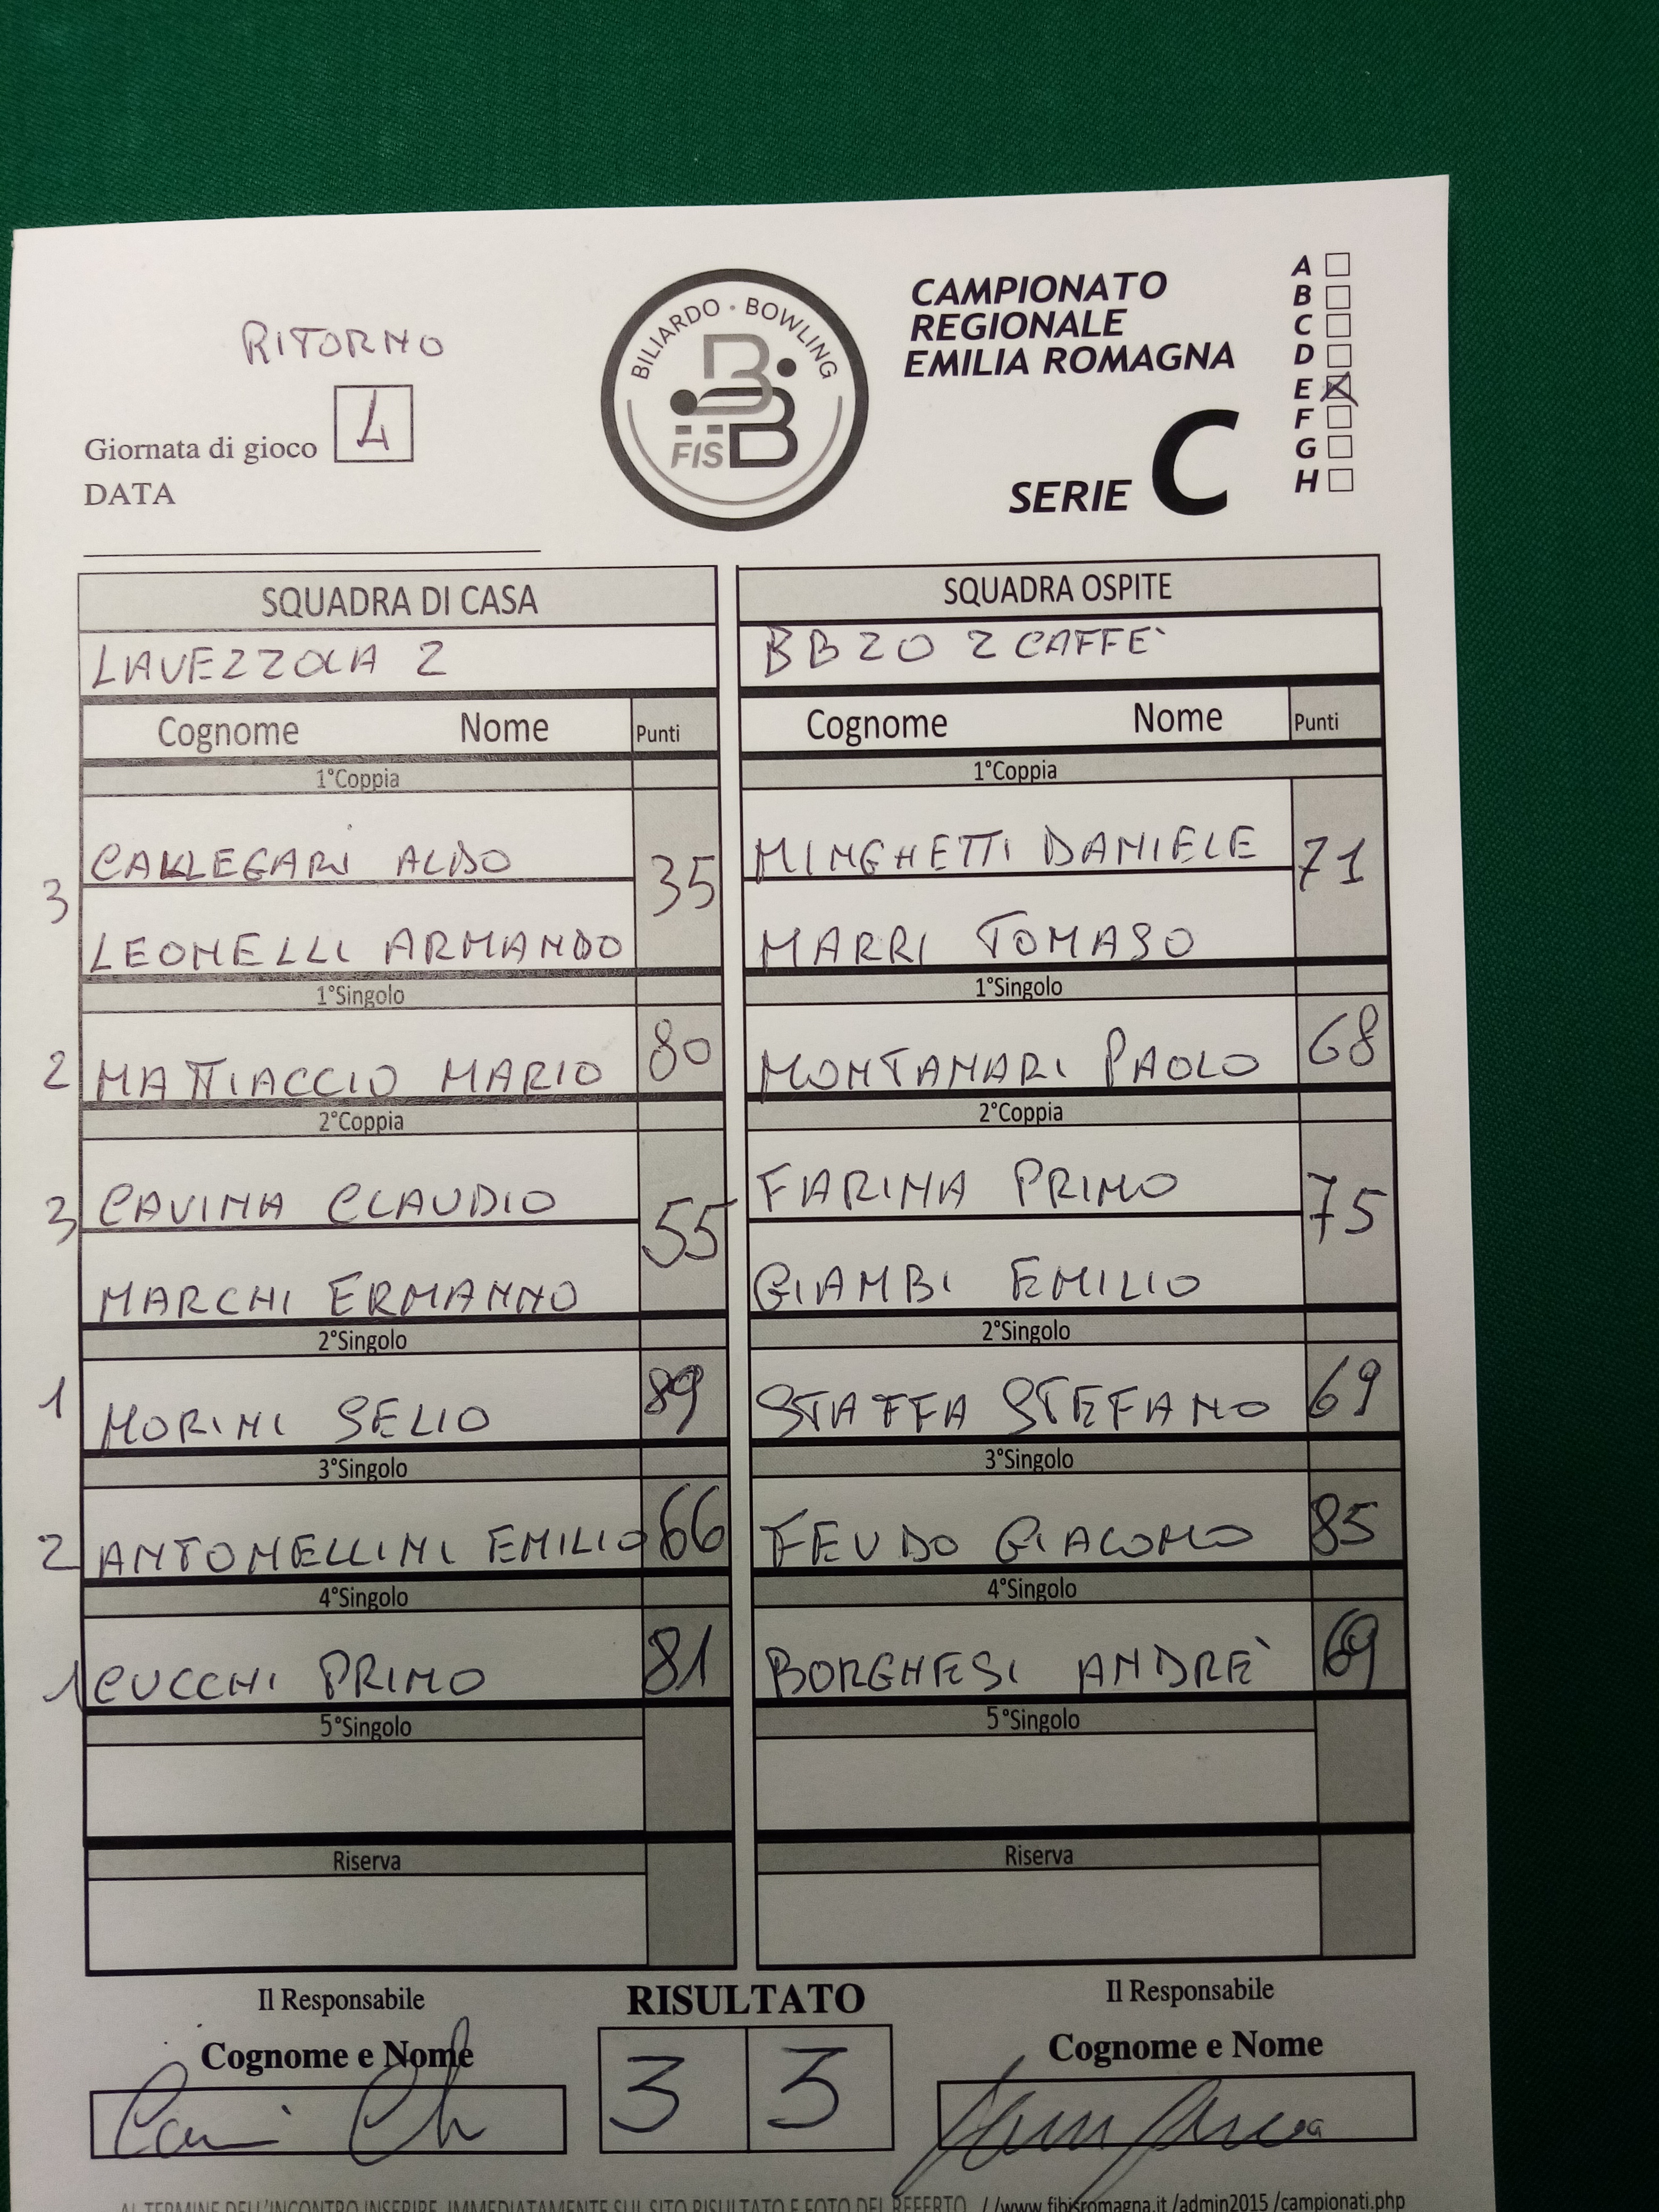 RITORNO
Giornata di gioco 4
DATA
BILIARDO • BOWLING
FISBB
CAMPIONATO
REGIONALE
EMILIA ROMAGNA
SERIE C
A
B
C
D
E X
F
G
H
SQUADRA DI CASA SQUADRA OSPITE
LAVEZZOLA 2 BB 20 2 CAFFE'
Cognome Nome Punti Cognome Nome Punti
1°Coppia 1°Coppia
3 CALLEGARI ALDO 35 MINGHETTI DANIELE 71
LEONELLI ARMANDO MARRI TOMASO
1°Singolo 1°Singolo
2 MATTIACCIO MARIO 80 MONTANARI PAOLO 68
2°Coppia 2°Coppia
3 CAVINA CLAUDIO 55 FARINA PRIMO 75
MARCHI ERMANNO GIAMBI EMILIO
2°Singolo 2°Singolo
1 MORINI SELIO 89 STAFFA STEFANO 69
3°Singolo 3°Singolo
2 ANTONELLINI EMILIO 66 FEUDO GIACOMO 85
4°Singolo 4°Singolo
1 CUCCHI PRIMO 81 BORGHESI ANDRE' 69
5°Singolo 5°Singolo
Riserva Riserva
Il Responsabile RISULTATO Il Responsabile
Cognome e Nome Cognome e Nome
3 3
AL TERMINE DELL'INCONTRO INSERIRE IMMEDIATAMENTE SUL SITO RISULTATO E FOTO DEL REFERTO //www.fibisromagna.it /admin2015 /campionati.php